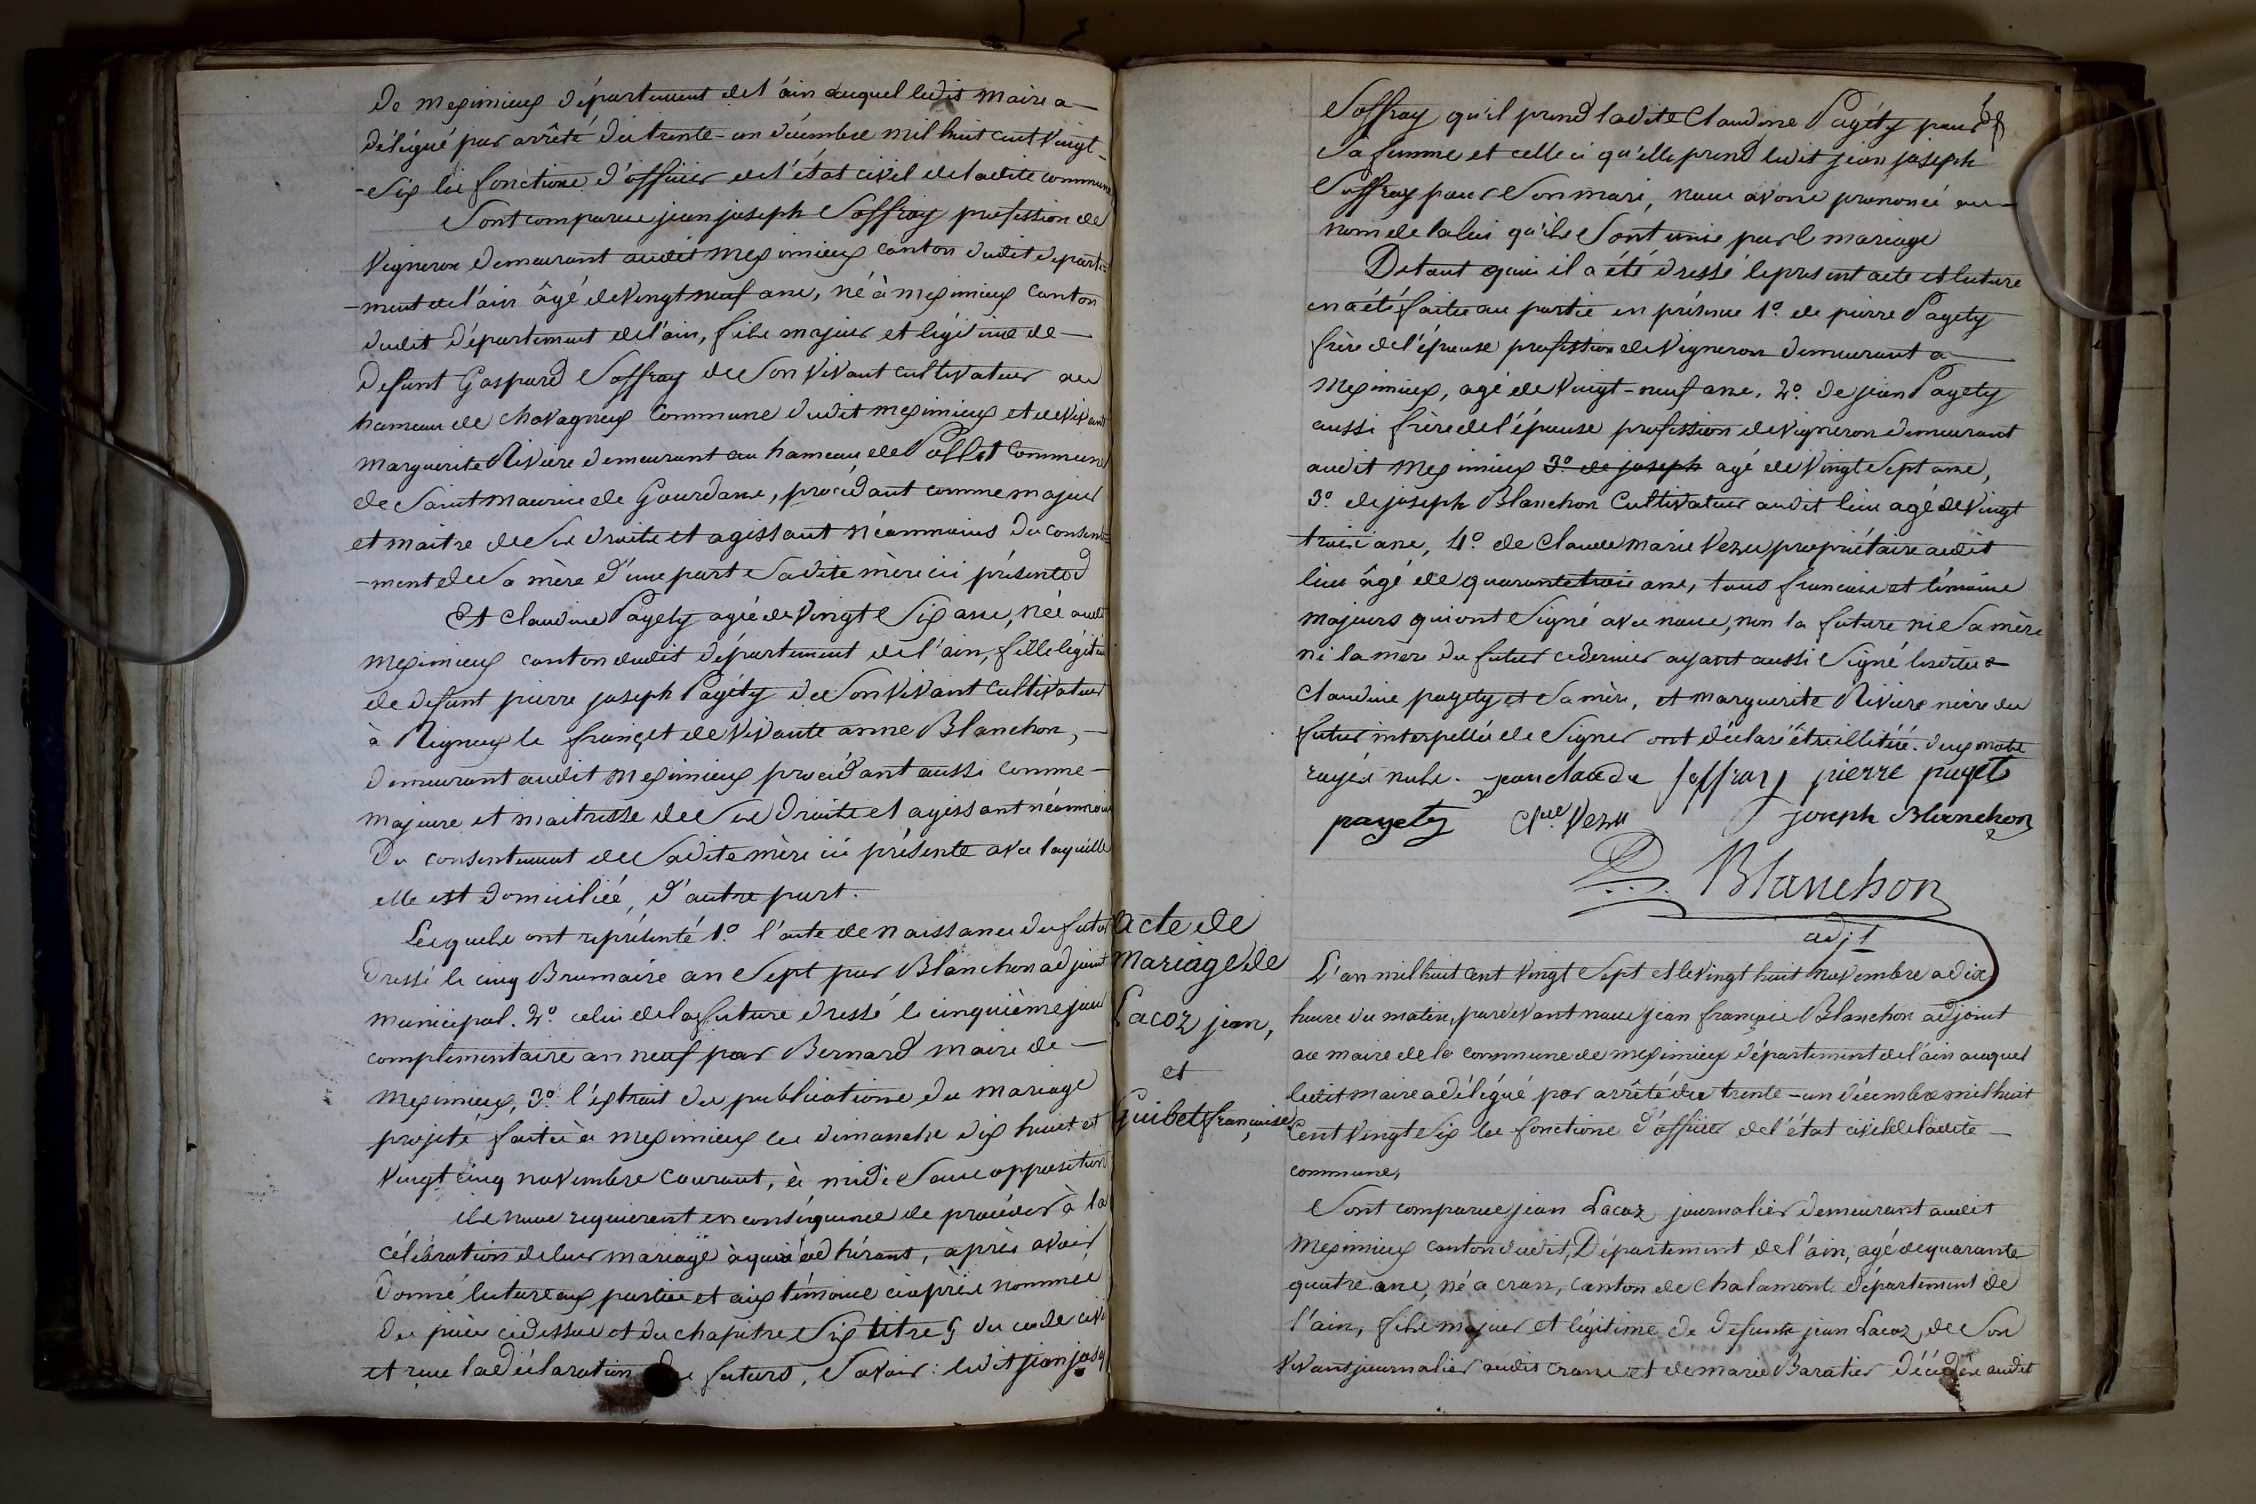 De meximieux département de l'ain auquel ledit maire a
délégué par arrêté du trente-un décembre mil huit cent vingt-
-six les fonctions d'officier de l'état civil de ladite commune
Sont comparus jean joseph Soffray profession de
vigneron demeurant audit meximieux canton dudit départe=
-ment de l'ain âgé de vingt neuf ans, né à meximieux canton
dudit département de l'ain, fils majeur et légitime de
defunt Gaspard Soffray de son vivant cultivateur au
hameau de chavagneux commune dudit meximieux et de vivante
marguerite Rivière demeurant au hameau de Pollet commune
de Saint maurice de Gourdans, procédant comme majeur
et maitre de ses droits et agissant néanmoins du consente=
-ment de sa mère d'une part sadite mère ici présente
Et Claudine Pagéty agée de vingt six ans, née audit
meximieux canton dudit département de l'ain, fille légitime
de defunt pierre joseph Pagéty de son vivant cultivateur
à Rigneux le franc, et de vivante anne Blanchon,
demeurant audit meximieux procédant aussi comme
majeure et maitresse de ses droits et agissant néanmoins
du consentement de sadite mère ici présente avec laquelle
elle est domiciliée, d'autre part.
Lesquels ont représenté 1.° l'acte de naissance du futur
dressé le cinq Brumaire an sept par Blanchon adjoint
municipal. 2.° celui de la future dressé le cinquième jour
complémentaire an neuf par Bernard maire de
meximieux, 3.° l'extrait des publications du mariage
projeté faites à meximieux les dimanche dix huit et
vingt cinq novembre courant, à midi sans opposition
ils nous requierent en conséquence de procéder à la
célébration de leur mariage à quoi adhérant, après avoir
donné lecture aux parties et aux témoins ciaprès nommés
des pièces cidessus et du chapitre six titre 5 du code civil
et reçu la déclaration des futurs, Savoir: ledit jean joseph
Soffray qu'il prend ladite Claudine Pagéty pour
sa femme et celle ci qu'elle prend ledit jean joseph
Soffray pour son mari, nous avons prononcé au
nom de la loi qu'ils sont unis par le mariage
De tout quoi il a été dressé le présent acte et lecture
en a été faite au partie en présence 1.° de pierre Pagety
frère de l'épouse profession de vigneron demeurant a
meximieux, agé de vingt-neuf ans. 2.° de jean Pagety
aussi frère de l'épouse profession de vigneron demeurant
audit meximieux 3.° de joseph agé de vingt sept ans,
3.° de joseph Blanchon cultivateur audit lieu agé de vingt
trois ans, 4.° de Claude marie Vezu propriétaire audit
lieu âgé de quarante trois ans, tous français et témoins
majeurs qui ont signé avec nous, non la future ni sa mère
ni la mère du futur ce dernier ayant aussi signé lesdites
Claudine pagety et sa mère, et marguerite Rivière mère du
futur interpellés de signer ont déclaré être illitéré. deux mots
rayés nuls. jean claude soffray pierre paget
pagety Cl.de Vezu joseph Blanchon
Blanchon
adj.t
acte de
mariage de
Lacoz jean,
et
Guibet françoise
L'an mil huit cent vingt sept et le vingt huit novembre a dix
heures du matin, pardevant nous jean françois Blanchon adjoint
au maire de la commune de meximieux département de l'ain auquel
ledit maire a délégué par arrêté du trente-un décembre mil huit
cent vingt six les fonctions d'officier de l'état civil de ladite
commune,
Sont comparus jean Lacoz journalier demeurant audit
meximieux canton dudit, Département de l'ain, agé de quarante
quatre ans, né a crans, canton de chalamont département de
l'ain, fils majeur et légitime de defunts jean Lacoz, de son
vivant journalier audit crans et de marie Baratier décédée audit